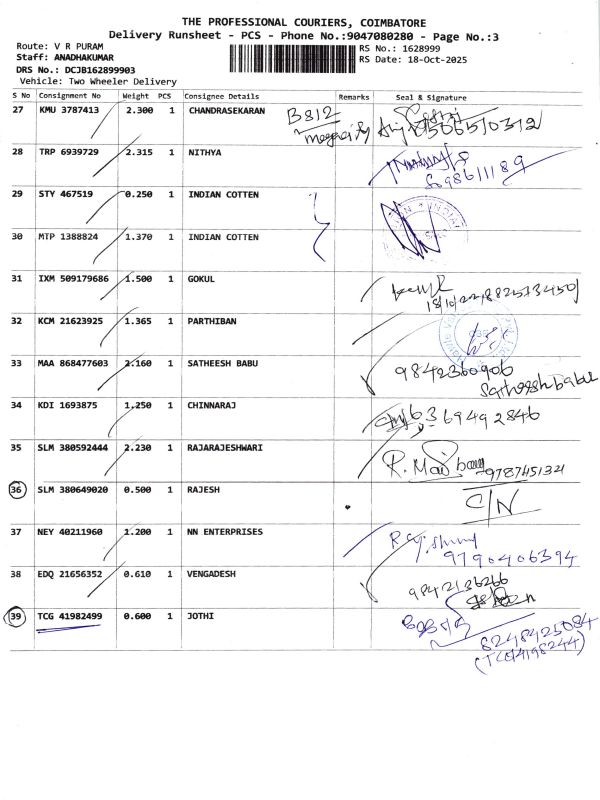 THE PROFESSIONAL COURIERS, COIMBATORE
Delivery Runsheet - PCS - Phone No.:9047080280 - Page No.:3
Route: V R PURAM
RS No.: 1628999
Staff: ANADHAKUMAR
RS Date: 18-Oct-2025
DRS No.: DCJB162899903
Vehicle: Two Wheeler Delivery
S No Consignment No Weight PCS Consignee Details Remarks Seal & Signature
27 KMU 3787413 2.300 1 CHANDRASEKARAN B812
28 TRP 6939729 2.315 1 NITHYA
29 STY 467519 0.250 1 INDIAN COTTEN
30 MTP 1388824 1.370 1 INDIAN COTTEN
31 IXM 509179686 1.500 1 GOKUL
32 KCM 21623925 1.365 1 PARTHIBAN
33 MAA 868477603 2.160 1 SATHEESH BABU 9842360906
Sathessh babu
34 KDI 1693875 1.250 1 CHINNARAJ 6369492846
35 SLM 380592444 2.230 1 RAJARAJESHWARI
36 SLM 380649020 0.500 1 RAJESH C/N
37 NEY 40211960 1.200 1 NN ENTERPRISES
9790406394
38 EDQ 21656352 0.610 1 VENGADESH 9842136266
39 TCG 41982499 0.600 1 JOTHI
8248425084